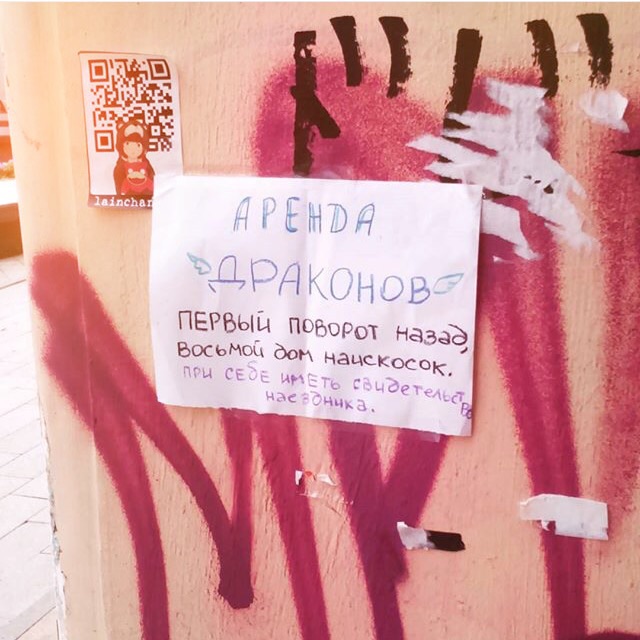 lainchan
АРЕНДА
ДРАКОНОВ
ПЕРВЫЙ ПОВОРОТ назад,
восьмой дом наискосок.
при себе иметь свидетельство
наездника.